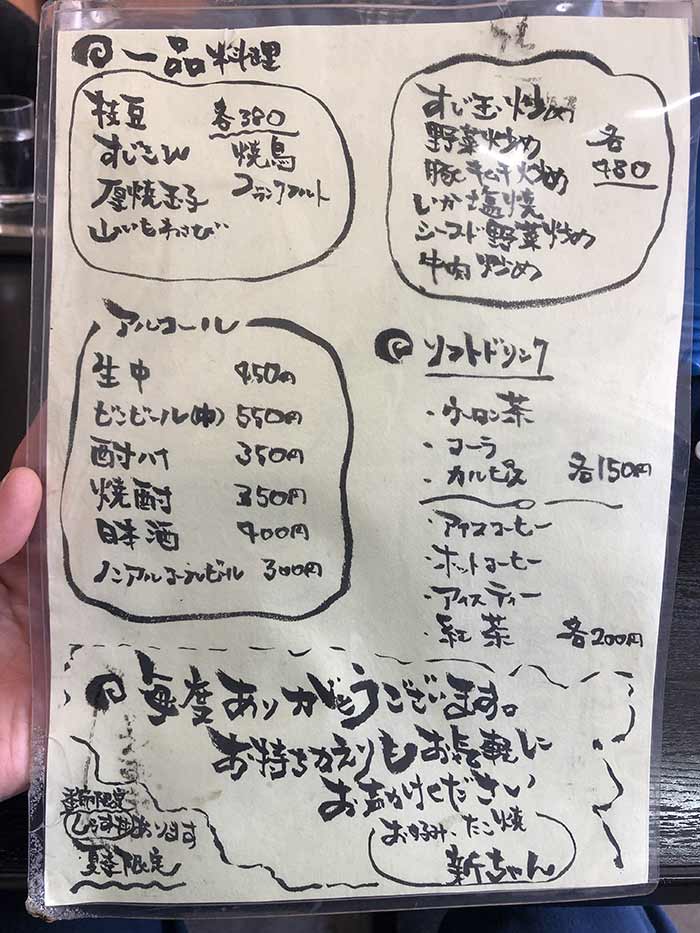 一品料理
枝豆 各380
すじこん 焼鳥
厚焼玉子 フランクフルト
山いもわさび
すじ玉炒め
野菜炒め 各
豚キムチ炒め 480
いか塩焼
シーフード野菜炒め
牛肉炒め
アルコール
生中 450円
ビンビール(中) 550円
酎ハイ 350円
焼酎 350円
日本酒 400円
ノンアルコールビール 300円
ソフトドリンク
・ウーロン茶
・コーラ
・カルピス 各150円
・アイスコーヒー
・ホットコーヒー
・アイスティー
・紅茶 各200円
毎度ありがとうございます。
お持ちかえりもお気軽に
お声かけください
お好み、たこ焼
新ちゃん
あります
夏季限定